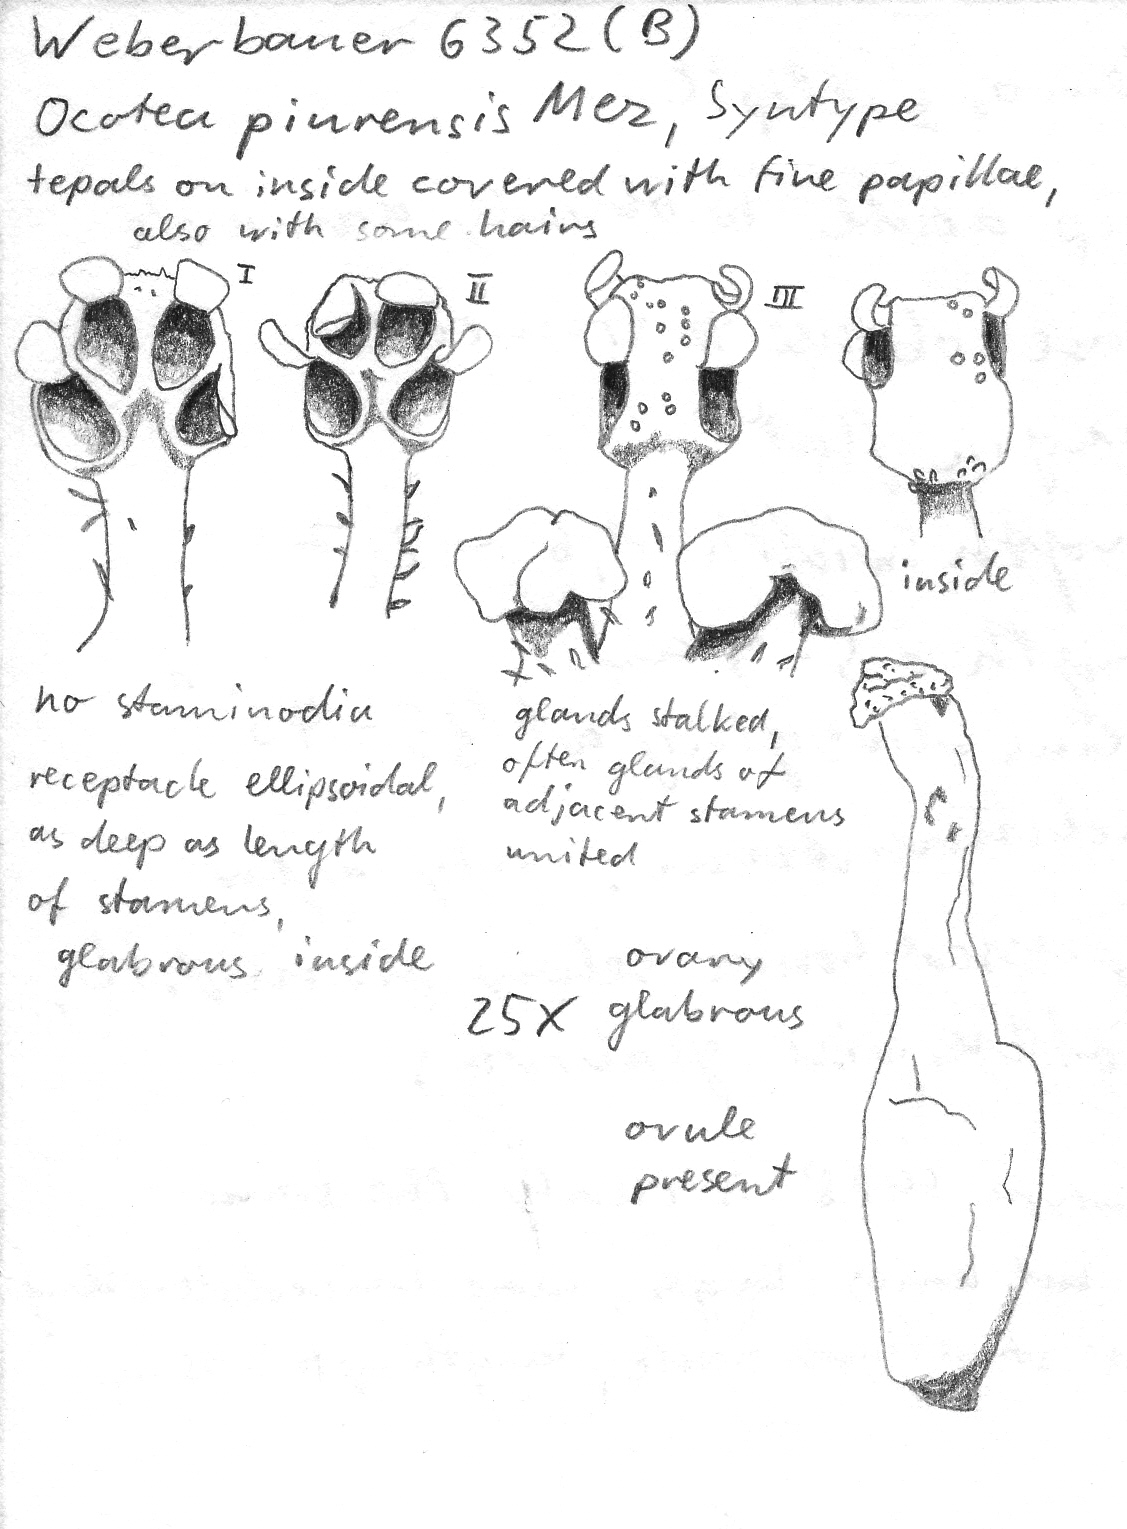 Weberbauer 6352 (B)
Ocotea piurensis Mez, Syntype
tepals on inside covered with fine papillae,
also with some hairs
I
II
III
inside
no staminodia
receptacle ellipsoidal,
as deep as length
of stamens,
glabrous inside
glands stalked,
often glands of
adjacent stamens
united
25X
ovary
glabrous
ovule
present